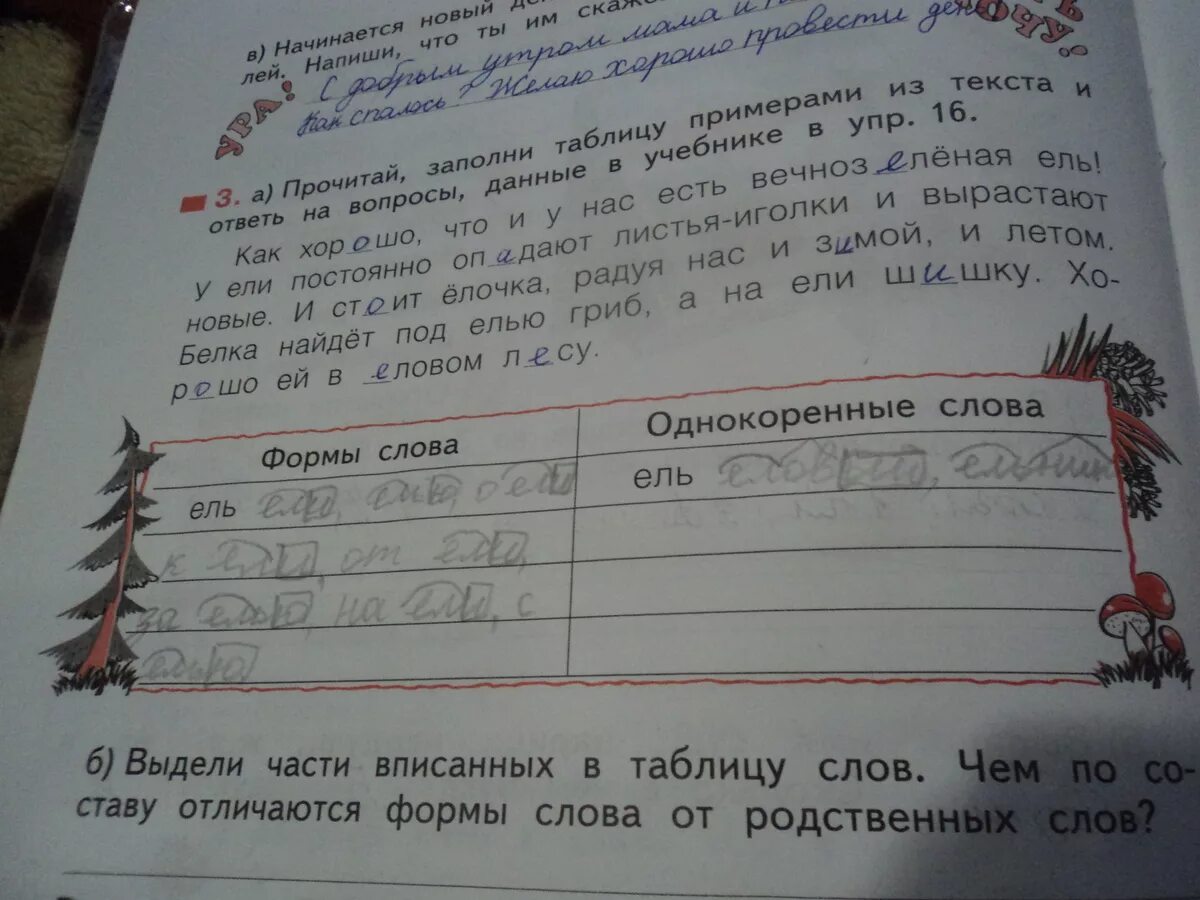 в) Начинается новый
лей. Напиши, что ты им
С добрым утром мама и
Как спалось? Желаю хорошо провести день
УРА!
ОЧУ!
3. а) Прочитай, заполни таблицу примерами из текста и
ответь на вопросы, данные в учебнике в упр. 16.
Как хорошо, что и у нас есть вечнозелёная ель!
У ели постоянно опадают листья-иголки и вырастают
новые. И стоит ёлочка, радуя нас и зимой, и летом.
Белка найдёт под елью гриб, а на ели шишку. Хо-
рошо ей в еловом лесу.
Формы слова
Однокоренные слова
ель ели, елью, о ели
ель еловый, ельник
к ели, от ели,
за елью, на ели, с
елью
б) Выдели части вписанных в таблицу слов. Чем по со-
ставу отличаются формы слова от родственных слов?